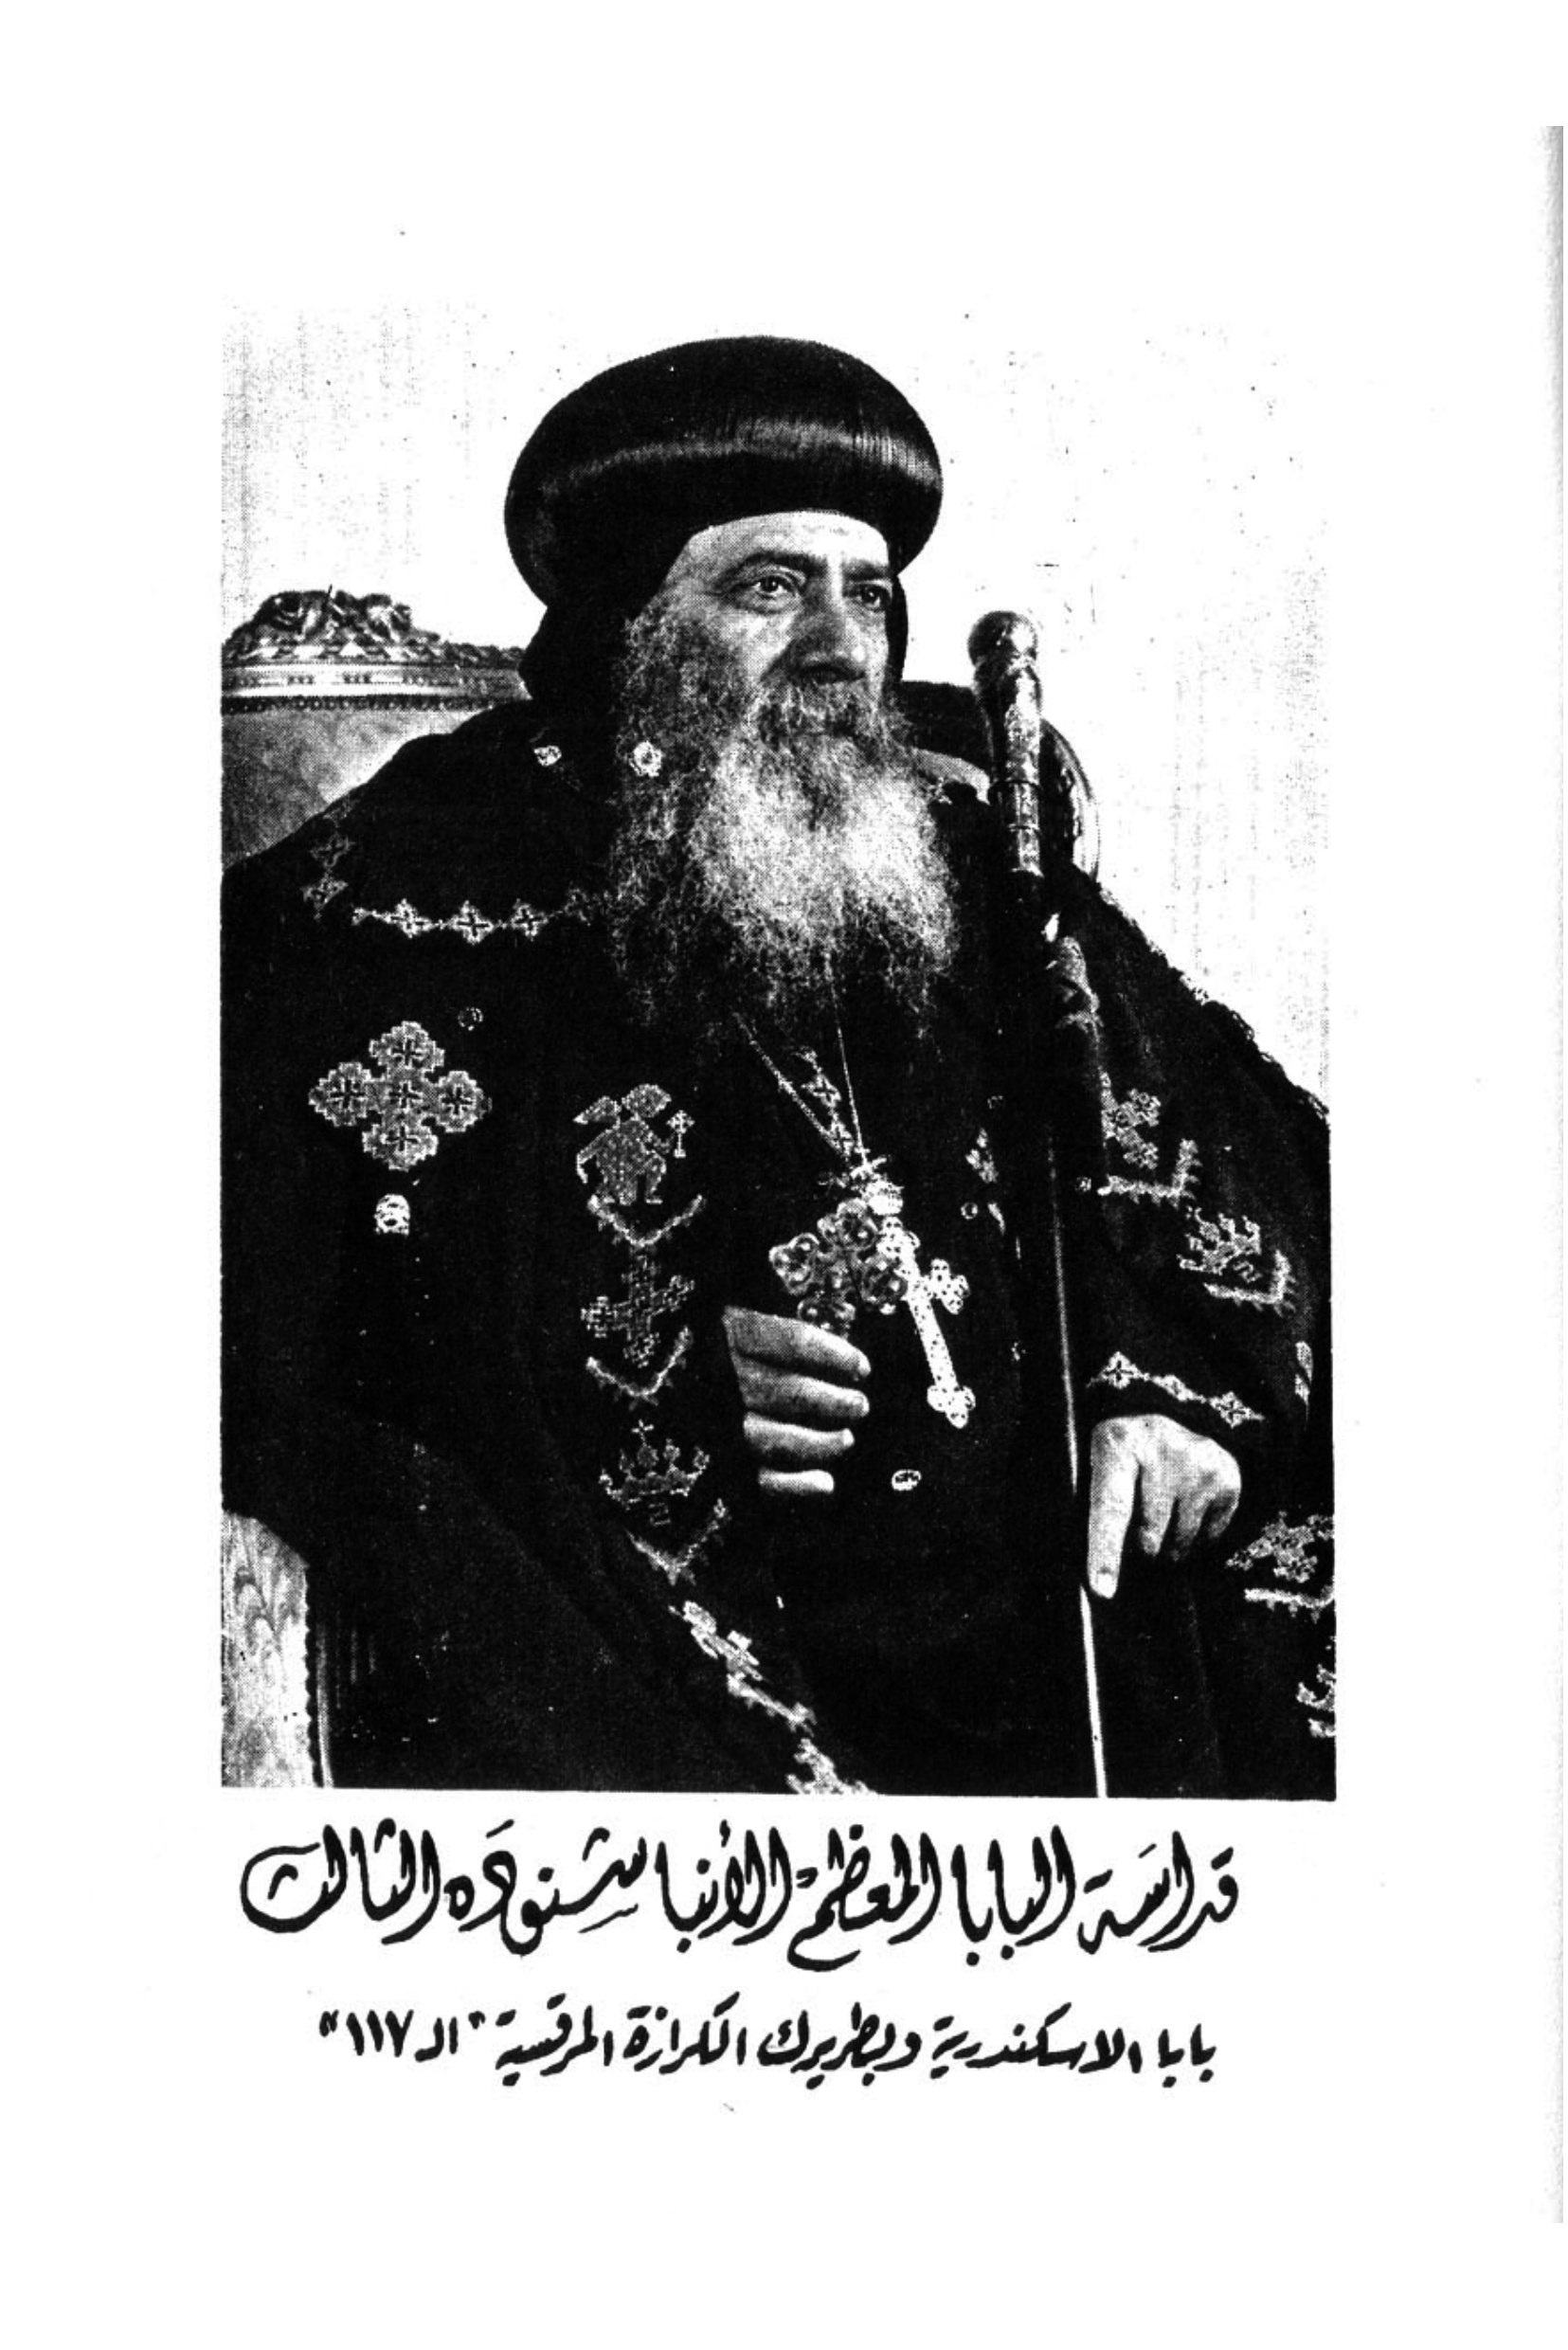 قداسة البابا المعظم الأنبا شنوده الثالث
بابا الاسكندرية وبطريرك الكرازة المرقسية "الـ ١١٧"